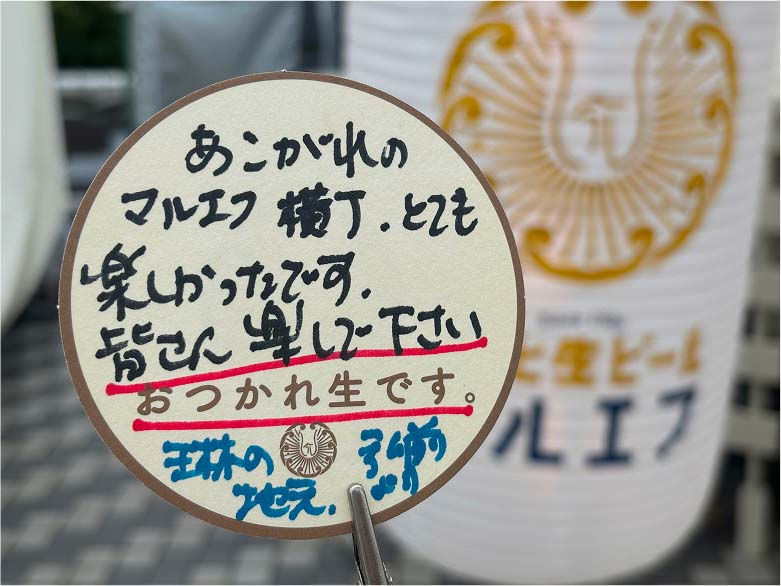 あこがれの
マルエフ 横丁.とても
楽しかったです.
皆さん 楽しんで下さい
おつかれ生です。
王林の 弘前
地元. より
生ビール
ルエフ